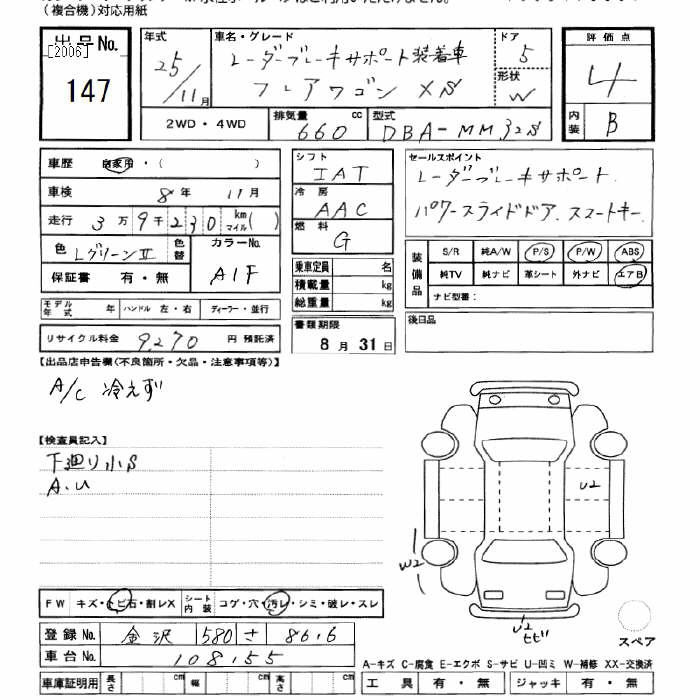 (複合機)対応用紙
出品No.
[2006]
147
年式
25/11月
車名・グレード
レーダーブレーキサポート装着車
フレアワゴン XS
ドア
5
形状
W
評価点
4
内装
B
2WD・4WD
排気量
660 cc
型式
DBA-MM32S
車歴 自家用・( )
車検 8年 11月
走行 3万9千230 km マイル( )
色 LグリーンII 色替
カラーNo.
A1F
保証書 有・無
モデル年式 年 ハンドル 左・右 ディーラー・並行
リサイクル料金 9270 円 預託済
シフト
IAT
冷房
AAC
燃料
G
乗車定員 名
積載量 kg
総重量 kg
書類期限
8月31日
セールスポイント
レーダーブレーキサポート.
パワースライドドア. スマートキー.
装備品
S/R 純A/W P/S P/W ABS
純TV 純ナビ 革シート 外ナビ エアB
ナビ型番:
後日品
【出品店申告欄(不良箇所・欠品・注意事項等)】
A/C 冷えず
【検査員記入】
下廻り小S
A.U
U2
W2
U2
ヒビ
スペア
FW キズ・トビ石・割レX シート内装 コゲ・穴・汚レ・シミ・破レ・スレ
登録No. 金沢 580 さ 86.6
車台No. 108155
車庫証明用 長さ cm 幅 cm 高さ cm
A-キズ C-腐食 E-エクボ S-サビ U-凹ミ W-補修 XX-交換済
工具 有・無 ジャッキ 有・無